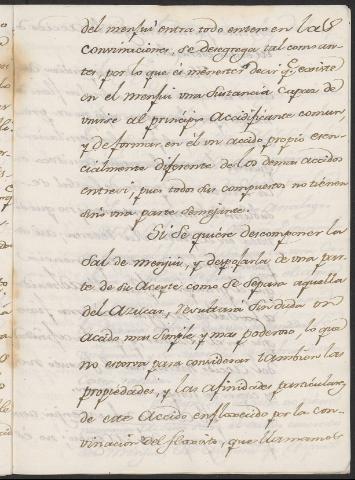 del menjui entra todo entero en las
convinaciones, se desegrega tal como an-
tes, por lo que es menester decir q.e existe
en el menjui una sustancia capaz de
unirse al principio Accidificante comun,
y de formar en el un acido propio esen-
cialmente diferente de los demas accidos
entre si, pues todos sus compuestos no tienen
sino una parte semejante.
Si se quiere descomponer la
Sal de menjui, y despojarla de una par-
te de su Aceyte como se separa aquella
del Azucar, resultará sin duda un
Acido mas simple, y mas poderoso, lo que
no estorva para considerar tambien las
propiedades, y las afinidades particulares
de este Accido enflorecido por la con-
vinacion del, que llamamos